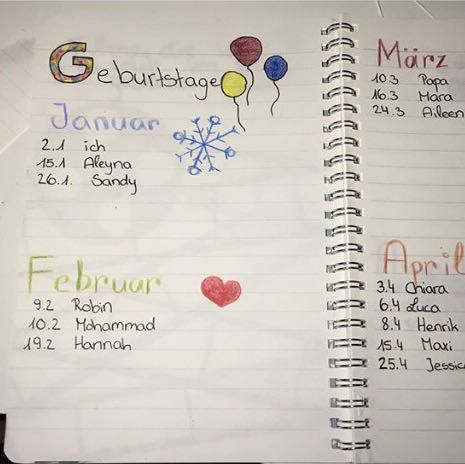 Geburtstage
Januar
2.1 ich
15.1 Aleyna
26.1. Sandy
Februar
9.2 Robin
10.2 Mohammad
19.2 Hannah
März
10.3 Papa
16.3 Mara
24.3 Aileen
April
3.4 Chiara
6.4 Luca
8.4 Henrik
15.4 Maxi
25.4 Jessica